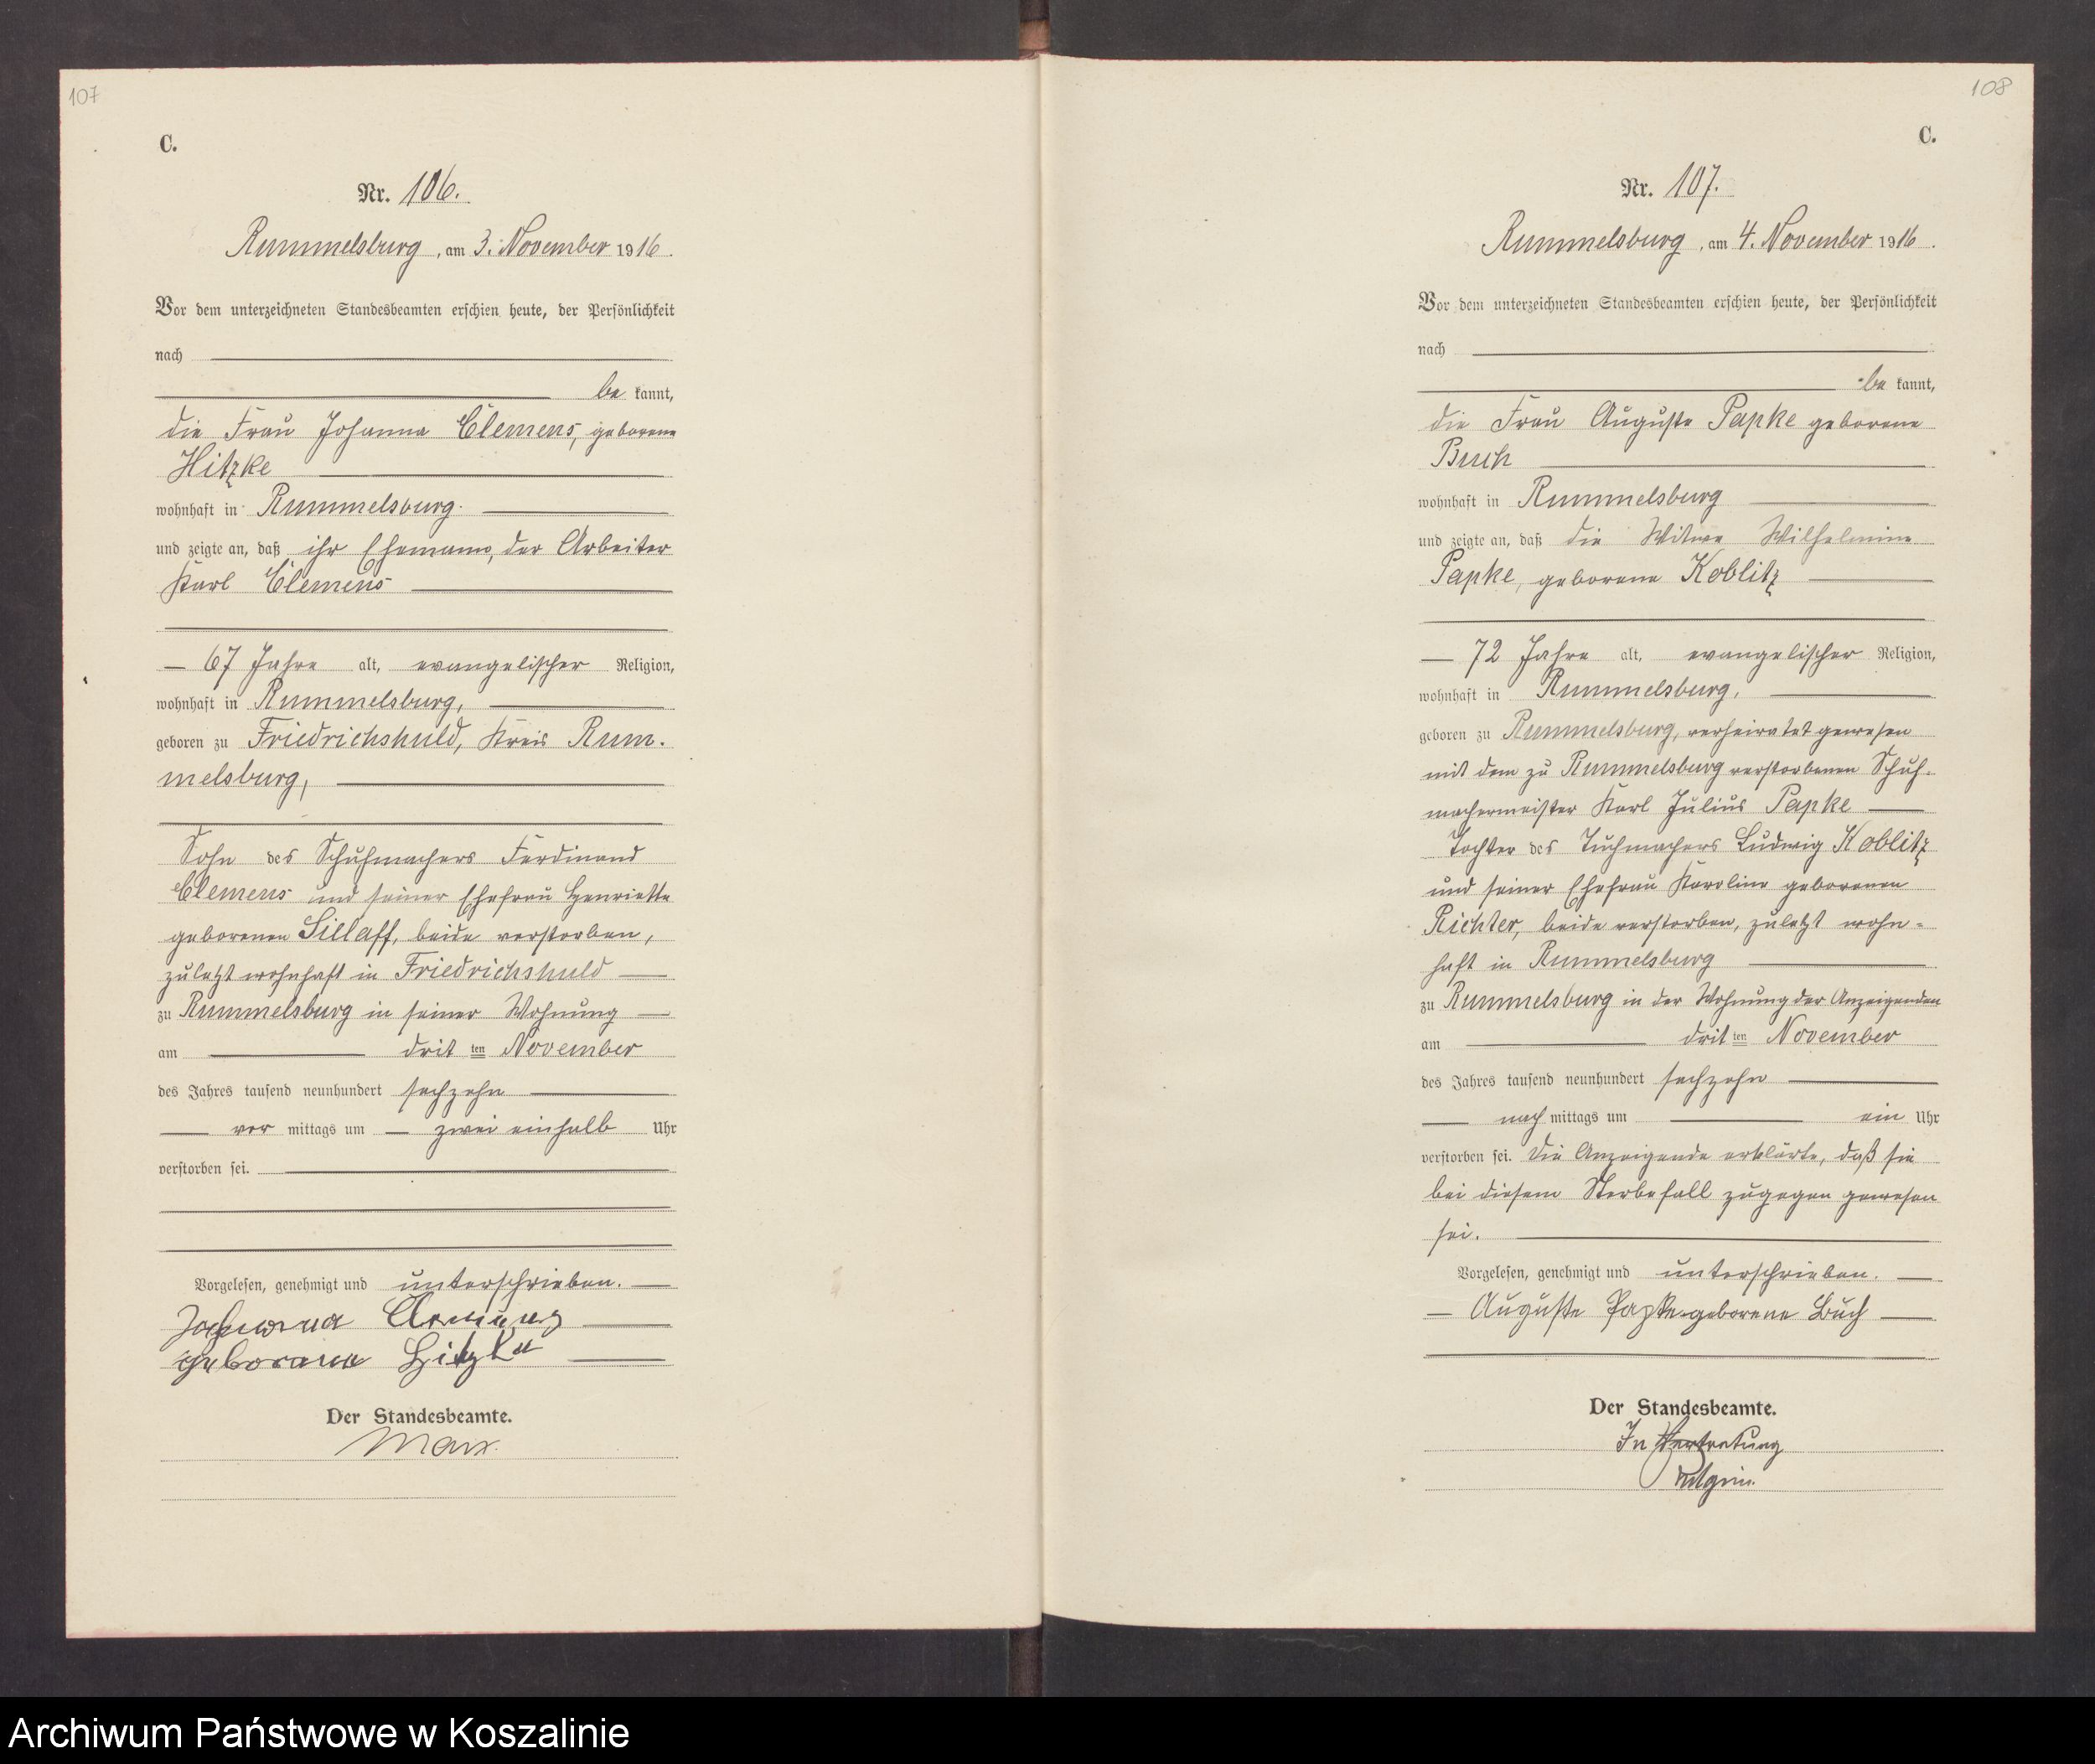 107
C.
Nr. 106.
Rummelsburg, am 3. November 1916.
Vor dem unterzeichneten Standesbeamten erschien heute, der Persönlichkeit
nach
be kannt,
die Frau Johanna Clemens, geborene
Hitzke
wohnhaft in Rummelsburg.
und zeigte an, daß ihr Ehemann, der Arbeiter
Karl Clemens
67 Jahre alt, evangelischer Religion,
wohnhaft in Rummelsburg,
geboren zu Friedrichshuld, Kreis Rum-
melsburg,
Sohn des Schuhmachers Ferdinand
Clemens und seiner Ehefrau Henriette
geborenen Sielaff, beide verstorben,
zuletzt wohnhaft in Friedrichshuld
zu Rummelsburg in seiner Wohnung
am dritten November
des Jahres tausend neunhundert sechzehn
vor mittags um zwei einhalb Uhr
verstorben sei.
Vorgelesen, genehmigt und unterschrieben.
Johanna Clemens
geborene Hitzke
Der Standesbeamte.
Marx.
108
C.
Nr. 107.
Rummelsburg, am 4. November 1916.
Vor dem unterzeichneten Standesbeamten erschien heute, der Persönlichkeit
nach
be kannt,
die Frau Auguste Papke geborene
Buch
wohnhaft in Rummelsburg
und zeigte an, daß die Witwe Wilhelmine
Papke, geborene Koblitz
72 Jahre alt, evangelischer Religion,
wohnhaft in Rummelsburg,
geboren zu Rummelsburg, verheiratet gewesen
mit dem zu Rummelsburg verstorbenen Schuh-
machermeister Karl Julius Papke
Tochter des Tuchmachers Ludwig Koblitz
und seiner Ehefrau Karoline geborenen
Richter, beide verstorben, zuletzt wohn-
haft in Rummelsburg
zu Rummelsburg in der Wohnung der Anzeigenden
am dritten November
des Jahres tausend neunhundert sechzehn
nach mittags um ein Uhr
verstorben sei. Die Anzeigende erklärte, daß sie
bei diesem Sterbefall zugegen gewesen
sei.
Vorgelesen, genehmigt und unterschrieben.
Auguste Papke geborene Buch
Der Standesbeamte.
In Vertretung
Archiwum Państwowe w Koszalinie